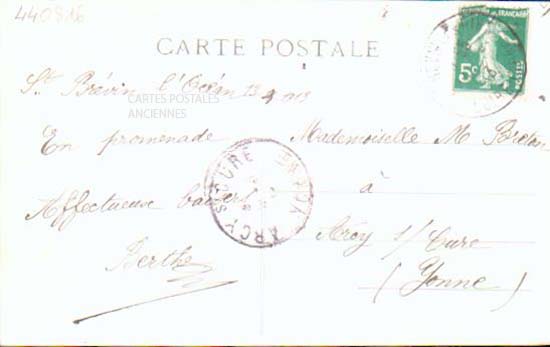 440816
CARTE POSTALE
5c
St Brévin l'Océan 13 4 1913
CARTES POSTALES
ANCIENNES
En promenade
Affectueux baisers
Berthe
ARCY S CURE YONNE
Mademoiselle M Breton
à
Arcy s/Cure
(Yonne)